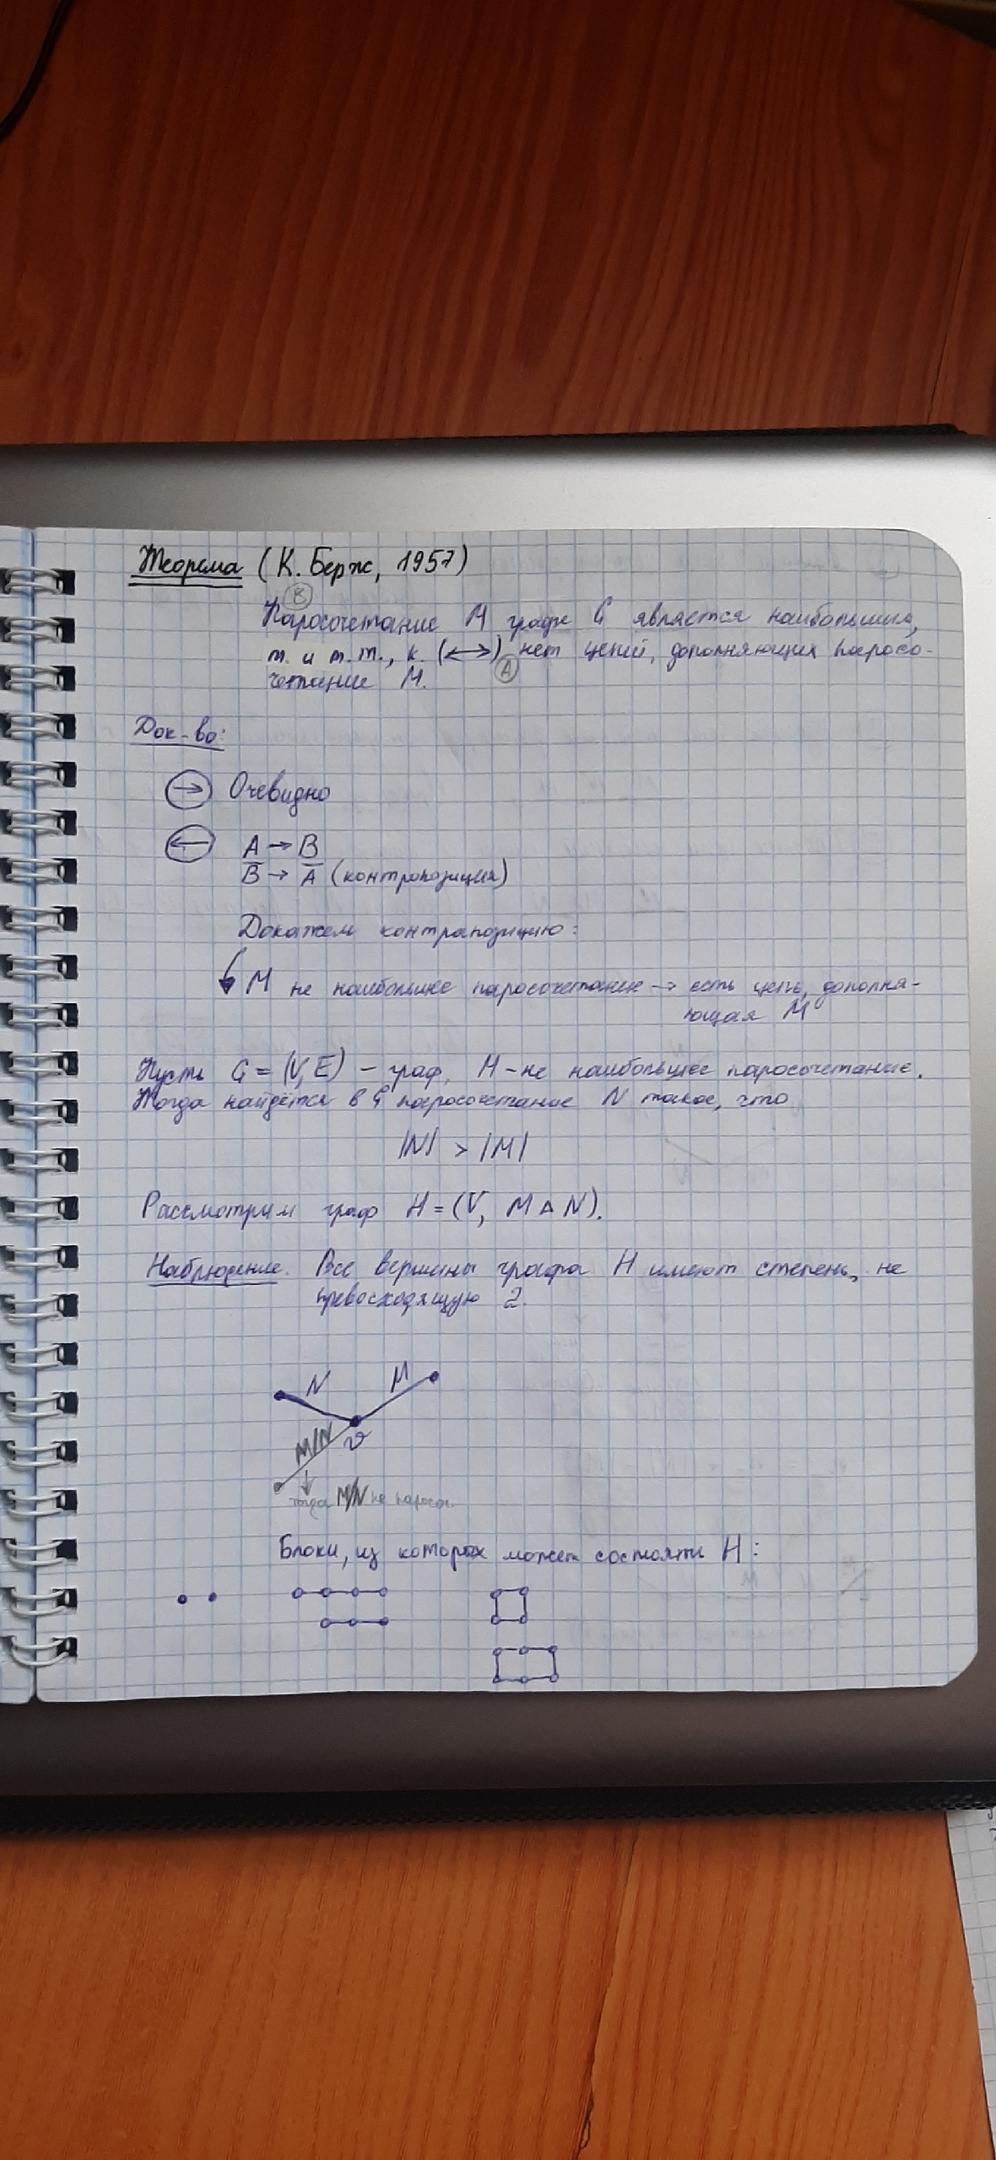 Теорема (К. Берж, 1957)
B
Паросочетание M графа G является наибольшим,
т. и т. т., к. (↔) нет цепей, дополняющих паросо-
A
четание M.
Док-во:
→ Очевидно
← A → B
B̅ → A̅ (контрапозиция)
Докажем контрапозицию:
M не наибольшее паросочетание → есть цепь, дополня-
ющая M
Пусть G = (V, E) – граф, M – не наибольшее паросочетание.
Тогда найдётся в G паросочетание N такое, что
|N| > |M|
Рассмотрим граф H = (V, M Δ N).
Наблюдение. Все вершины графа H имеют степень, не
превосходящую 2.
N M
M/N v
тогда M/N не паросоч.
Блоки, из которых может состоять H: